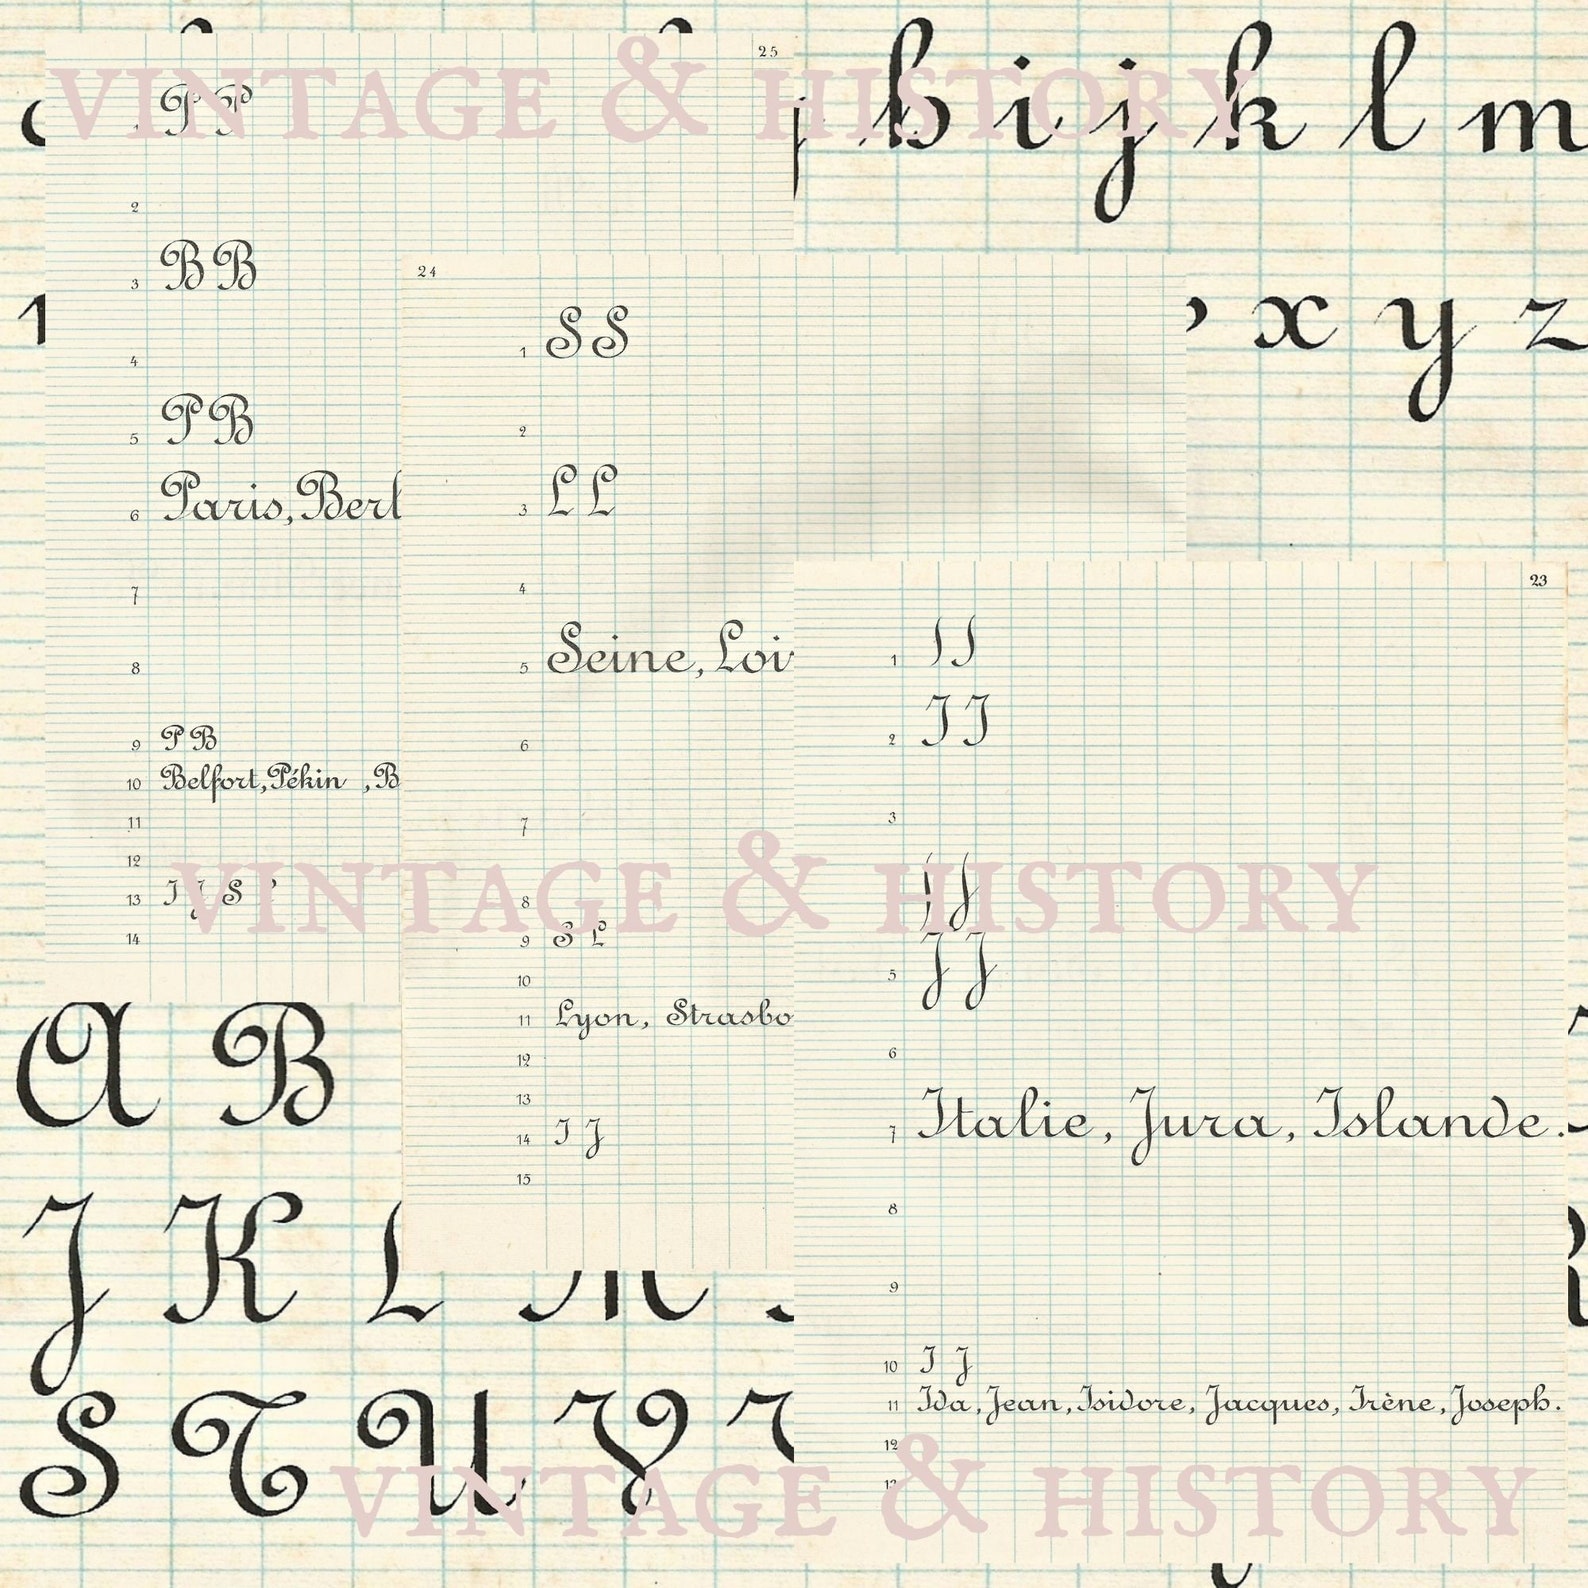 VINTAGE & HISTORY
h i j k l m
x y z
25
P P
2
3 B B
4
5 P B
6 Paris, Berl
7
8
9 P B
10 Belfort, Pékin , B
11
12
13 I J S
14
24
1 S S
2
3 L L
4
5 Seine, Loi
6
7
8
9 S L
10
11 Lyon, Strasbo
12
13
14 I J
15
23
1
2 I I
3
VINTAGE & HISTORY
5 J J
6
7 Italie, Jura, Islande.
8
9
10 I J
11 Ida, Jean, Isidore, Jacques, Irène, Joseph.
12
A B
J K L M
S T U V
VINTAGE & HISTORY